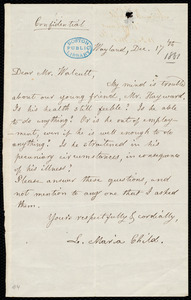 Confidential.
BOSTON
PUBLIC
LIBRARY
Wayland, Dec. 17th
1881
Dear Mr. Walcutt,
My mind is trouble
about our young friend, Mr. Hayward.
Is his health still feeble? Is he able
to do anything? Or is he out of employ-
ment, even if he is well enough to do
anything? Is he straitened in his
pecuniary circumstances, in consequence
of his illness?
Please answer these questions, and
not mention to any one that I asked
them.
Yours respectfully & cordially,
L. Maria Child.